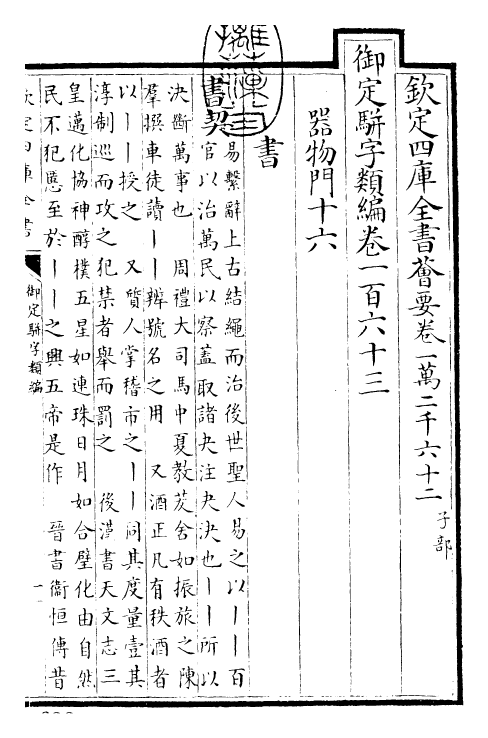 欽定四庫全書薈要卷一萬二千六十二 子部
御定駢字類編卷一百六十三
器物門十六
書
書契 易繫辭上古結繩而治後世聖人易之以丨丨百
官以治萬民以察蓋取諸夬注夬決也丨丨所以
決斷萬事也 周禮大司馬中夏教茇舍如振旅之陳
羣撰車徒讀丨丨辨號名之用 又酒正凡有秩酒者
以丨丨授之 又質人掌稽市之丨丨同其度量壹其
淳制巡而攷之犯禁者舉而罰之 後漢書天文志三
皇邁化協神醇樸五星如連珠日月如合璧化由自然
民不犯慝至於丨丨之興五帝是作 晉書衞恒傳昔
欽定四庫全書
御定駢字類編
一